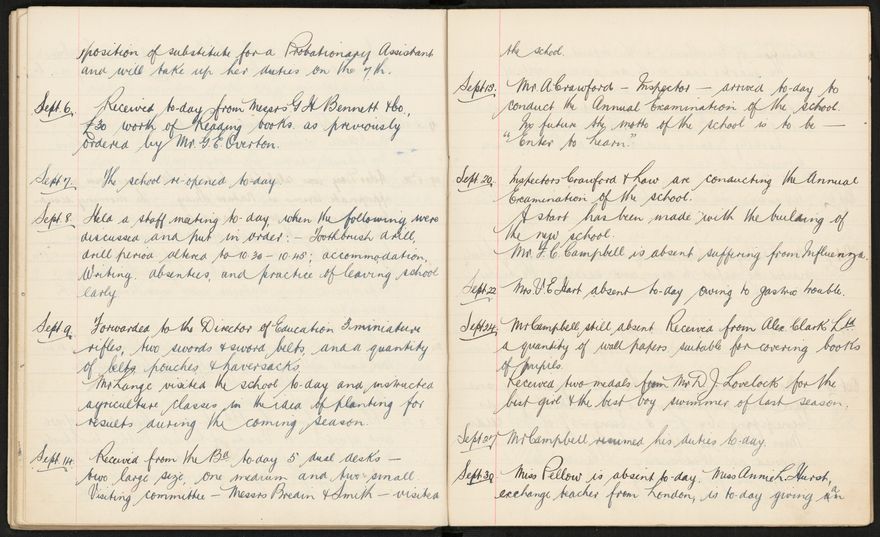 position of substitute for a Probationary Assistant
and will take up her duties on the 7th.
Sept. 6. Received to-day from Messrs G. H. Bennett & Co.,
£30 worth of Reading books as previously
ordered by Mr. G. E. Overton.
Sept. 7. The school re-opened to-day
Sept. 8. Held a staff meeting to-day when the following were
discussed and put in order: - Toothbrush drill,
drill period altered to 10.30 - 10.45; accommodation,
Writing, absentees, and practice of leaving school
early
Sept. 9. Forwarded to the Director of Education 3 miniature
rifles, two swords & sword belts, and a quantity
of belts, pouches & haversacks.
Mr Lange visited the school to-day and instructed
agriculture classes in the idea of planting for
results during the coming season.
Sept. 14. Received from the Bd to-day 5 dual desks -
two large size, one medium and two small.
Visiting committee - Messrs Bredin & Smith - visited
the school.
Sept. 19. Mr A Crawford - Inspector - arrived to-day to
conduct the Annual Examination of the school.
In future the motto of the school is to be -
"Enter to Learn."
Sept. 20. Inspectors Crawford & Law are conducting the Annual
Examination of the school.
A start has been made with the building of
the new school.
Mr. F. C. Campbell is absent suffering from Influenza.
Sept. 22 Mrs V. E Hart absent to-day owing to gastric trouble.
Sept 24. Mr Campbell still absent Received from Alex. Clark Ltd
a quantity of wall papers suitable for covering books
of pupils.
Received two medals from Mr D. J. Lovelock for the
best girl & the best boy swimmer of last season.
Sept 27 Mr Campbell resumed his duties to-day.
Sept. 30 Miss Pellow is absent to-day. Miss Annie L. Hurst,
exchange teacher from London, is to-day giving an